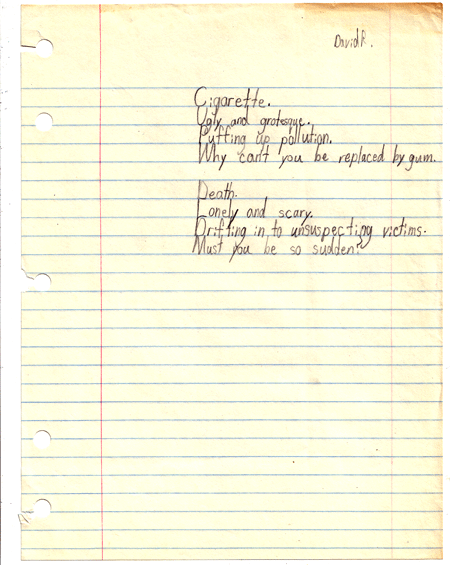 David R.
Cigarette.
Ugly and grotesque.
Puffing up pollution.
Why can't you be replaced by gum.
Death.
Lonely and scary.
Drifting in to unsuspecting victims.
Must you be so sudden?